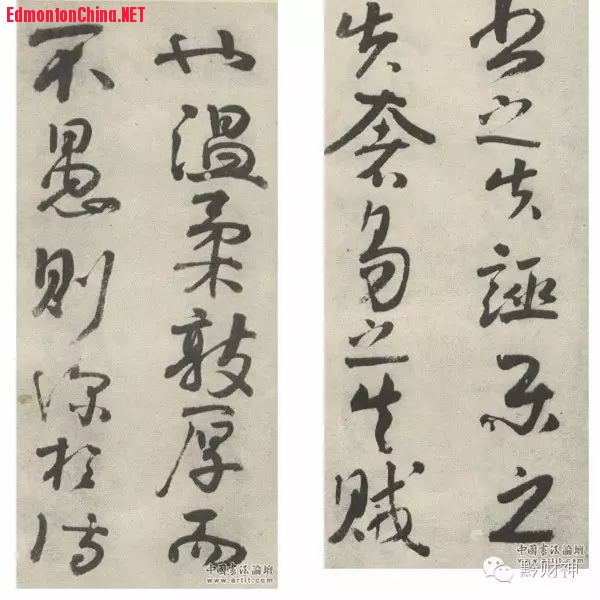 EdmontonChina.NET
書之失誣樂之
失奢易之失賊
也温柔敦厚而
不愚則深於詩
中國書法論壇
www.artit.com
中國書法論壇
黔财神